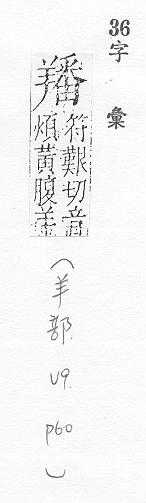 36字彙
羳
符艱切音
煩黃腹羊
（羊部. v9. p60）